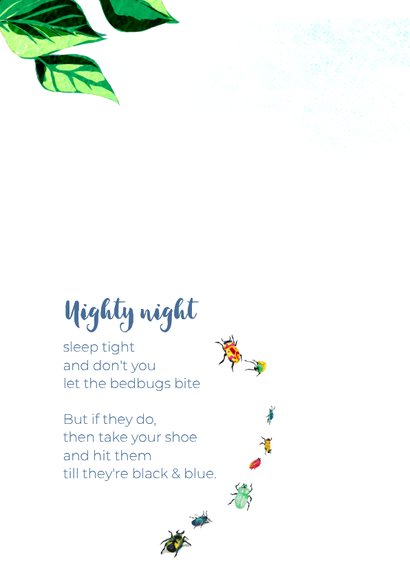 Nighty night
sleep tight
and don't you
let the bedbugs bite
But if they do,
then take your shoe
and hit them
till they're black & blue.